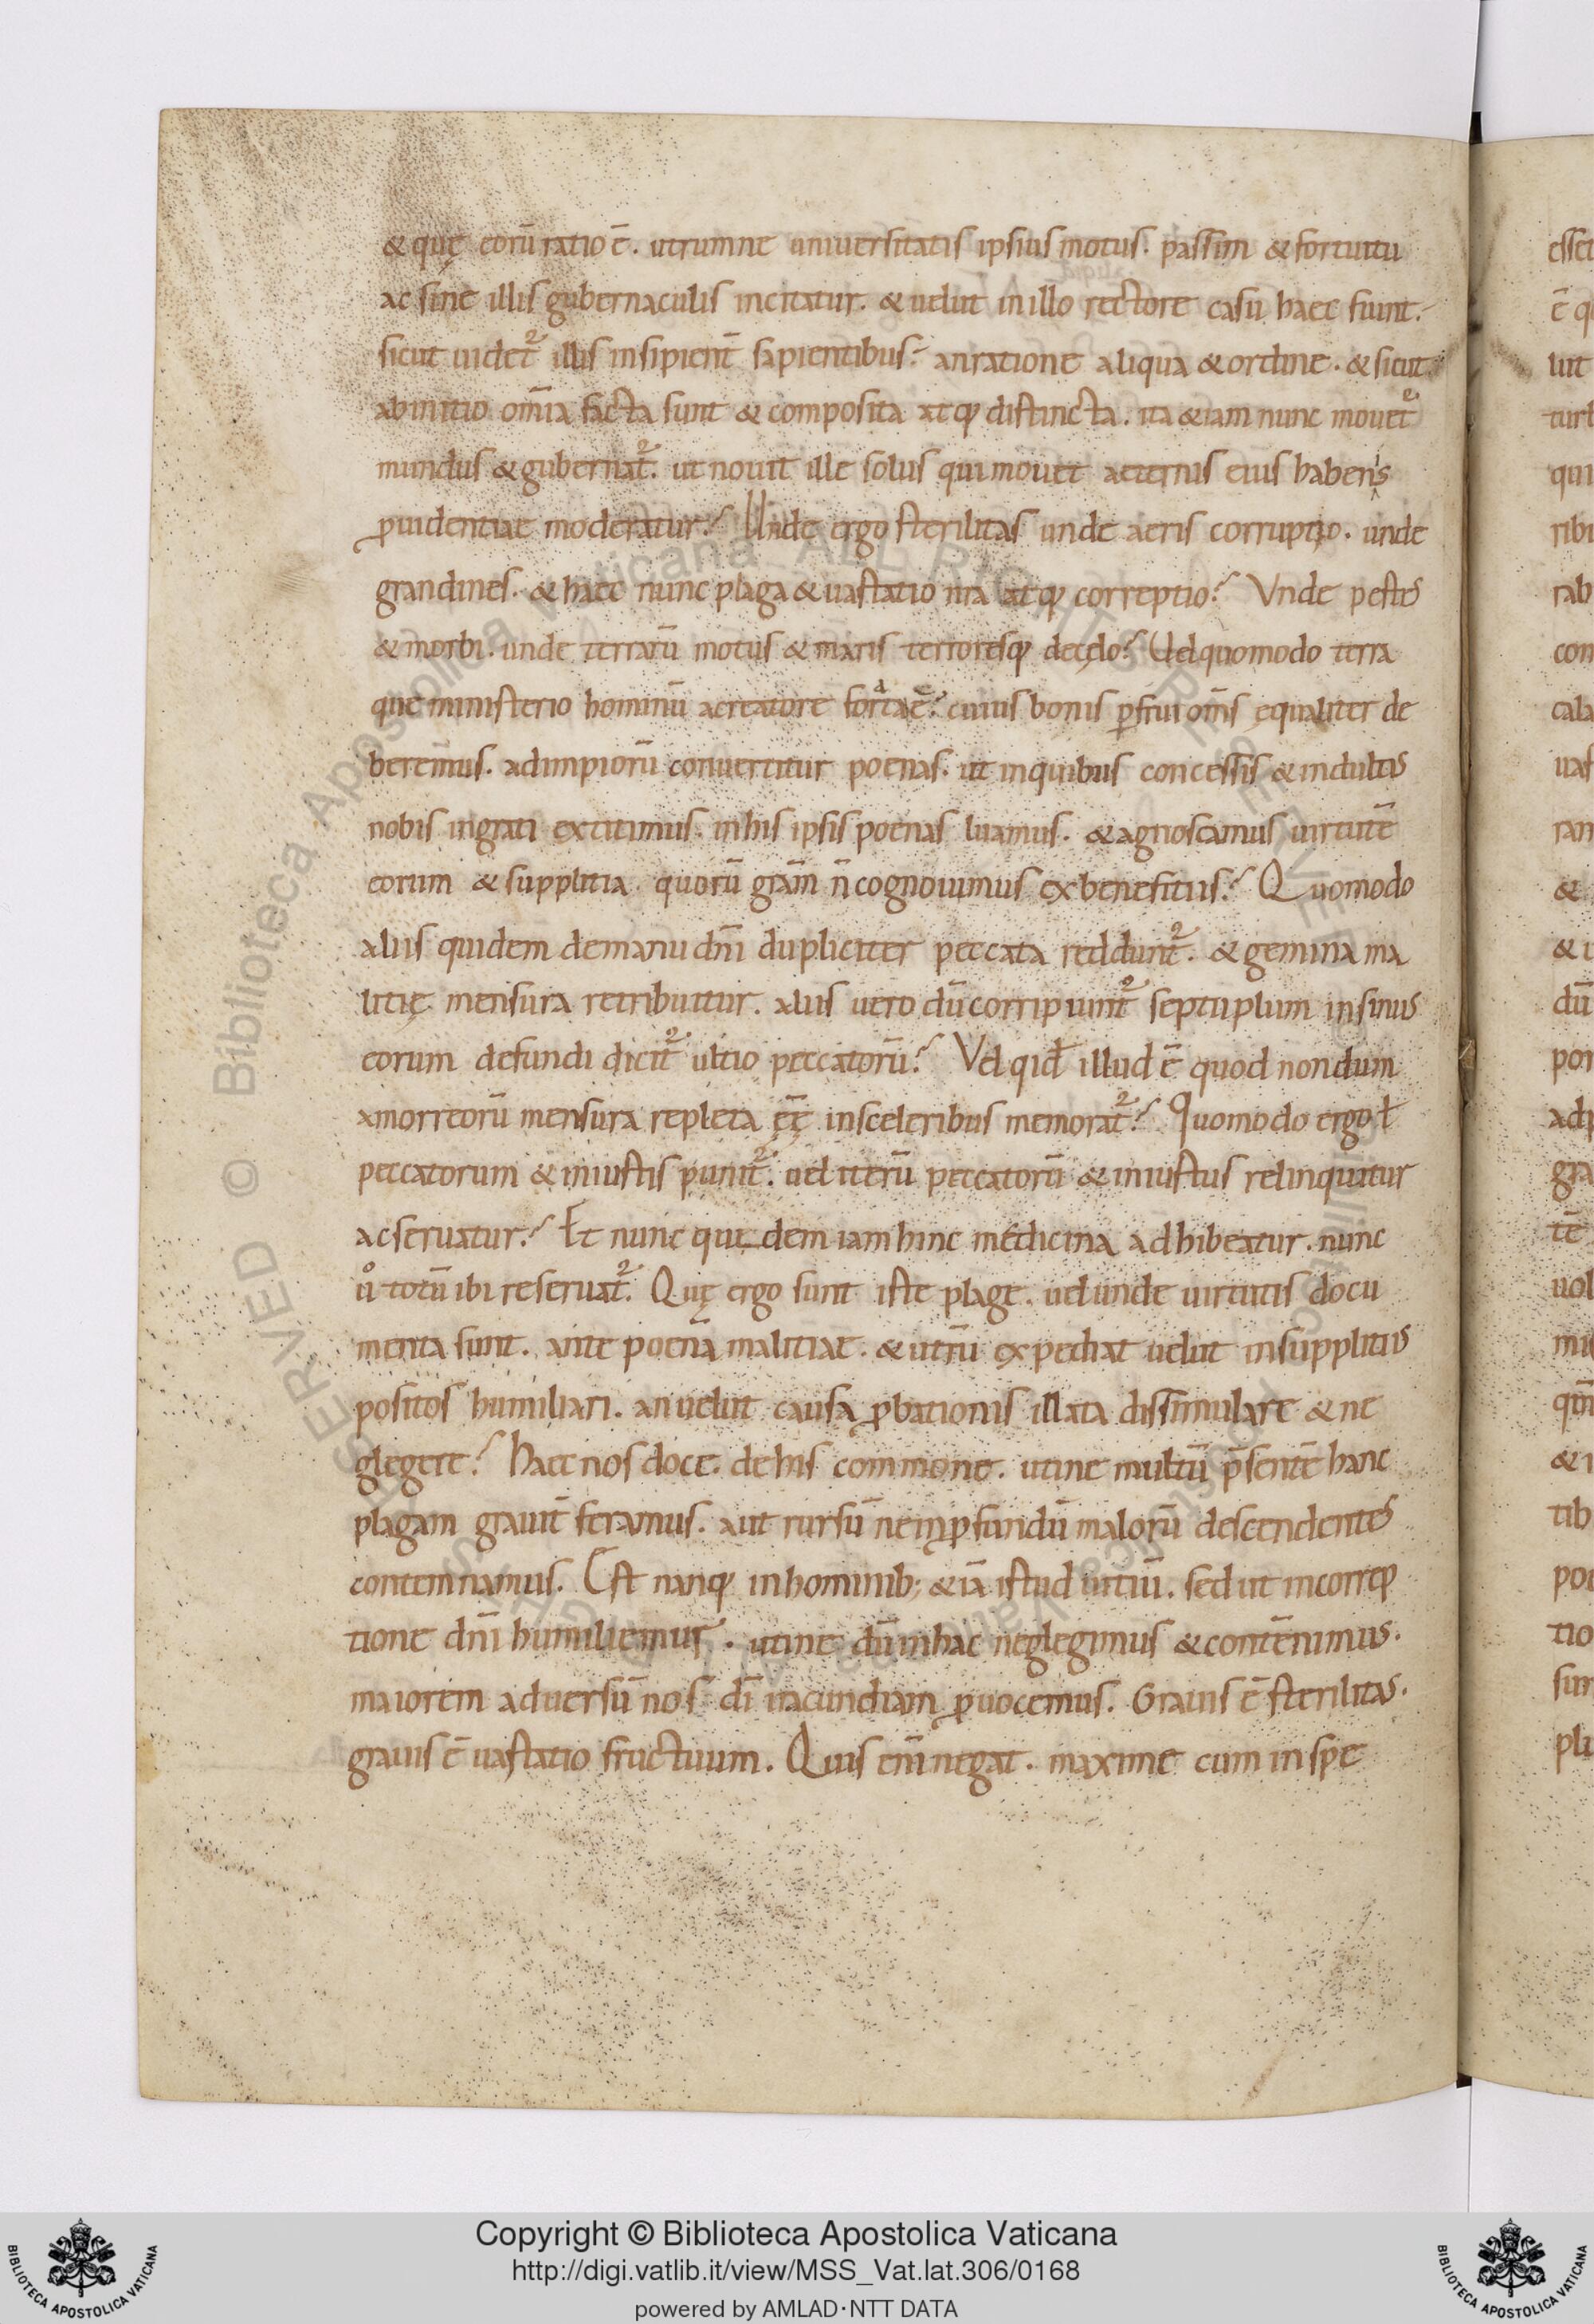 & quę eorū ratio ē. utrumne uniuersitatis ipsius motus. passim & fortuitu
ac sine illis gubernaculis incitatur. & uelut in illo rectore casu haec fiunt.
sicut uidet᷑ illis insipient̄ sapientibus? an ratione aliqua & ordine. & sicut
ab initio om̄ia facta sunt & composita atqꝫ distincta. ita & iam nunc mouet᷑
mundus & gubernat᷑. ut nouit ille solus qui mouet aeternis eius habenis
ꝓuidentiae moderatur? Unde ergo sterilitas unde aeris corruptio. unde
grandines. & haec nunc plaga & uastatio nr̄a atqꝫ correptio? Vnde pestis
& morbi. unde terrarū motus & maris terroresqꝫ de cęlo? Vel quomodo terra
que ministerio hominū a creatore fordata ē? cuius bonis ꝑfrui om̄s equaliter de
berem̄us. ad impiorū conuertitur poenas. ut in quibus concessis & indultis
nobis ingrati extitimus. in his ipsis poenas luamus. & agnoscamus uirtutē
eorum & supplitia quorū grām n̄ cognouimus ex benefitiis? Quomodo
aliis quidem de manu dn̄i dupliciter peccata reddunt᷑. & gemina ma
litię mensura retribuitur. aliis uero dū corripiunt᷑ septuplum in sinus
eorum defundi dicit᷑ ultio peccatorū? Vel qid illud ē quod nondum
amorreorū mensura repleta ēę in sceleribus memorat᷑? Quomodo ergo ł
peccatorum & iniustis punit᷑. uel iterū peccatorū & iniustus relinquitur
ac seruatur? Et nunc quidem iam hinc medicina adhibeatur. nunc
uͦ totū ibi reseruat᷑. Quę ergo sunt iste plage. uel unde uirtutis docu
menta sunt. ante poenā malitiae. & utrū expediat uelut in supplitiis
positos humiliari. an uelut causa ꝓbationis illata dissimulare & ne
glegere? Haec nos doce. de his commone. uti ne multū p̄sentē hanc
plagam grauit̄ feramus. aut rursū ne in ꝓfundū malorū descendentes
contemnamus. Est nanqꝫ in hominibꝫ & iā istud uitiū. sed ut in correp
tione dn̄i humiliemur. uti ne dū in hac neglegimus & contēnimus.
maiorem aduersū nos dī iracundiam ꝓuocemus. Grauis ē sterilitas.
grauis ē uastatio fructuum. Quis em̄ negat. maxime cum in spe
esset
ē q
lut
turb
qui
ribi
rab
con
cala
uas
ran
&
& i
dū
por
adp
gra
tē
uol
mi
qm̄
& i
tib
poe
tio
sur
pli
© Biblioteca Apostolica Vaticana ALL RIGHTS RESERVED
Copyright © Biblioteca Apostolica Vaticana
http://digi.vatlib.it/view/MSS_Vat.lat.306/0168
powered by AMLAD·NTT DATA
BIBLIOTECA APOSTOLICA VATICANA
BIBLIOTECA APOSTOLICA VATICANA